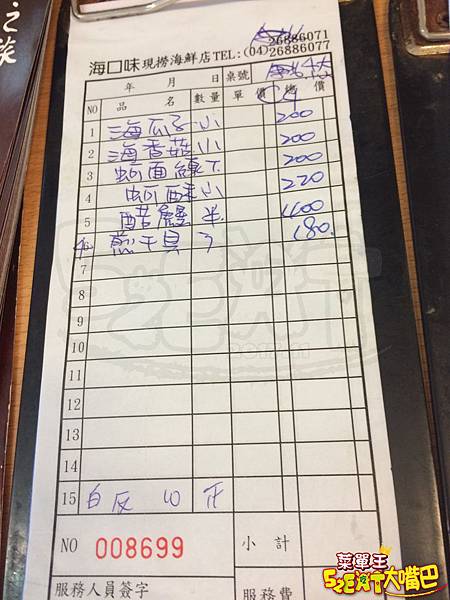 之
26886071
海口味現撈海鮮店TEL:(04)26886077
年 月 日 桌號
NO 品名 數量 單價 總價
1 海瓜子 小 200
2 海香菇 小 200
3 蚵面線 下 200
4 蚵酥 小 220
5 醋 半 400
煎干貝 3 180
7
8
9
10
11
12
13
14
15 白反 10 正
NO 008699 小計
服務人員簽字 服務費
菜單王
SEEAT大嘴巴